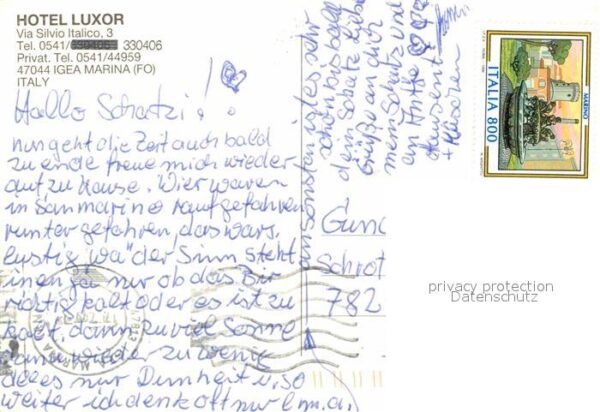 HOTEL LUXOR
Via Silvio Italico, 3
Tel. 0541/ 330406
Privat. Tel. 0541/44959
47044 IGEA MARINA (FO)
ITALY
Hallo Schatzi!
nun geht die Zeit auch bald
zu ende freue mich wieder
auf zu Hause. Wier waren
in San marino rauf gefahren
runter gefahren, das wars.
lustig wa der Sinn steht
inen ja nur ob das Bir
richtig kalt oder es ist zu
kalt, dann zu viel Sonne
dann wieder zu wenig
alles nur Dumheit u. so
weiter ich denk oft nur
ansonsten ist es sehr
schön bis bald
dein Schatz Liebe
Grüße an dich
mein Schatz und
an
dausent
+ Küsschen
ITALIA 800
MARINO
Gun
Schrot
782
privacy protection
Datenschutz